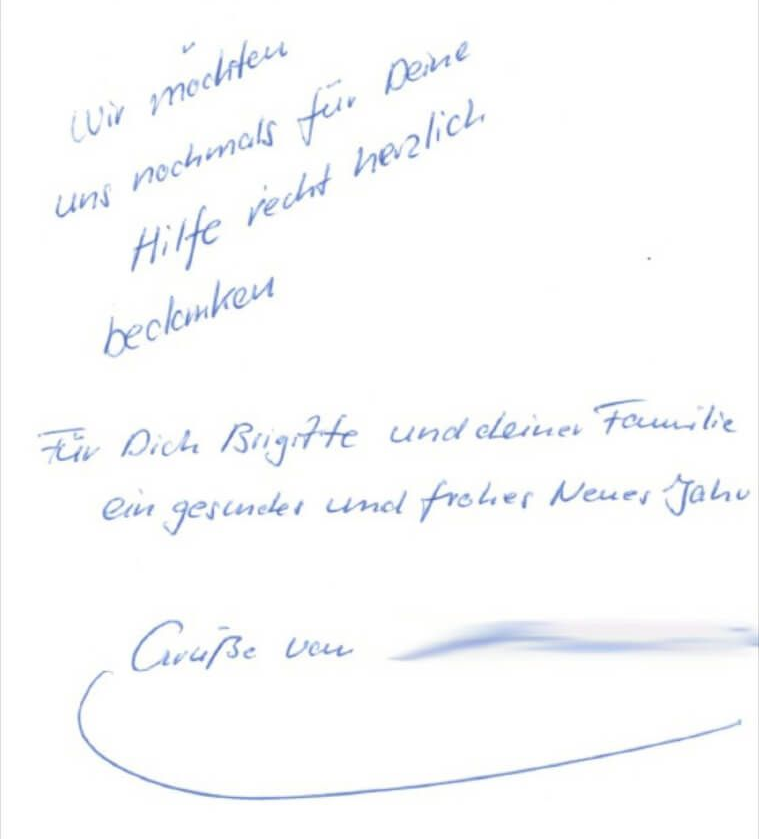 Wir möchten
uns nochmals für Deine
Hilfe recht herzlich
bedanken
Für Dich Brigitte und deiner Familie
ein gesundes und frohes Neues Jahr
Grüße von